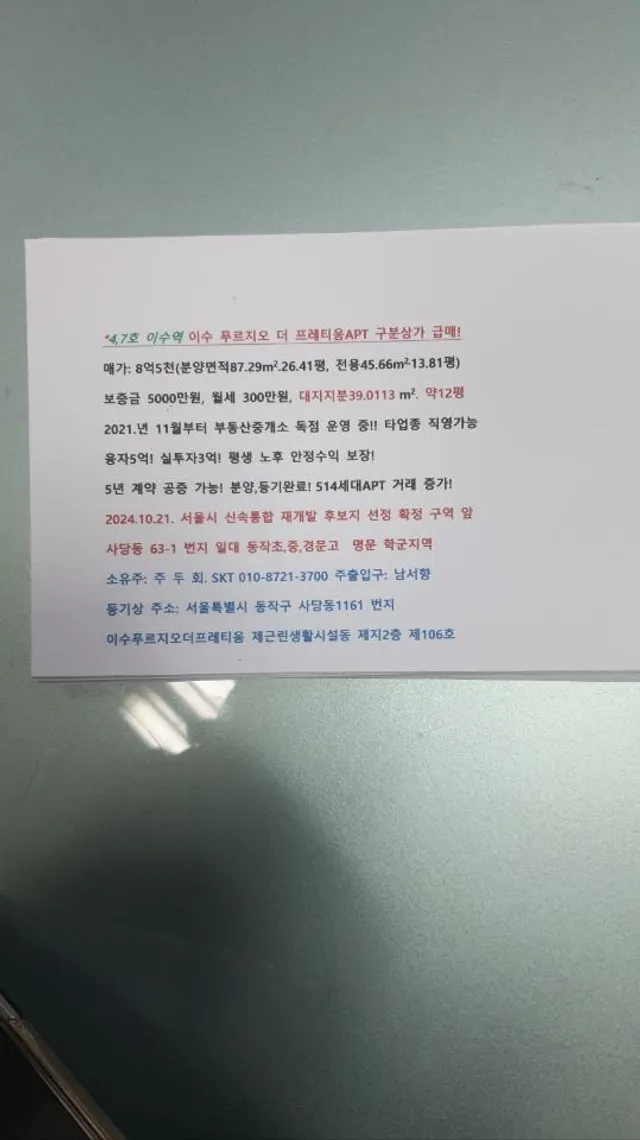 *4,7호 이수역 이수 푸르지오 더 프레티움APT 구분상가 급매!
매가: 8억5천(분양면적87.29m².26.41평, 전용45.66m²·13.81평)
보증금 5000만원, 월세 300만원, 대지지분39.0113 m². 약12평
2021.년 11월부터 부동산중개소 독점 운영 중!! 타업종 직영가능
융자5억! 실투자3억! 평생 노후 안정수익 보장!
5년 계약 공증 가능! 분양,등기완료! 514세대APT 거래 증가!
2024.10.21. 서울시 신속통합 재개발 후보지 선정 확정 구역 앞
사당동 63-1 번지 일대 동작초,중,경문고 명문 학군지역
소유주: 주 두 회. SKT 010-8721-3700 주출입구: 남서향
등기상 주소: 서울특별시 동작구 사당동1161 번지
이수푸르지오더프레티움 제근린생활시설동 제지2층 제106호